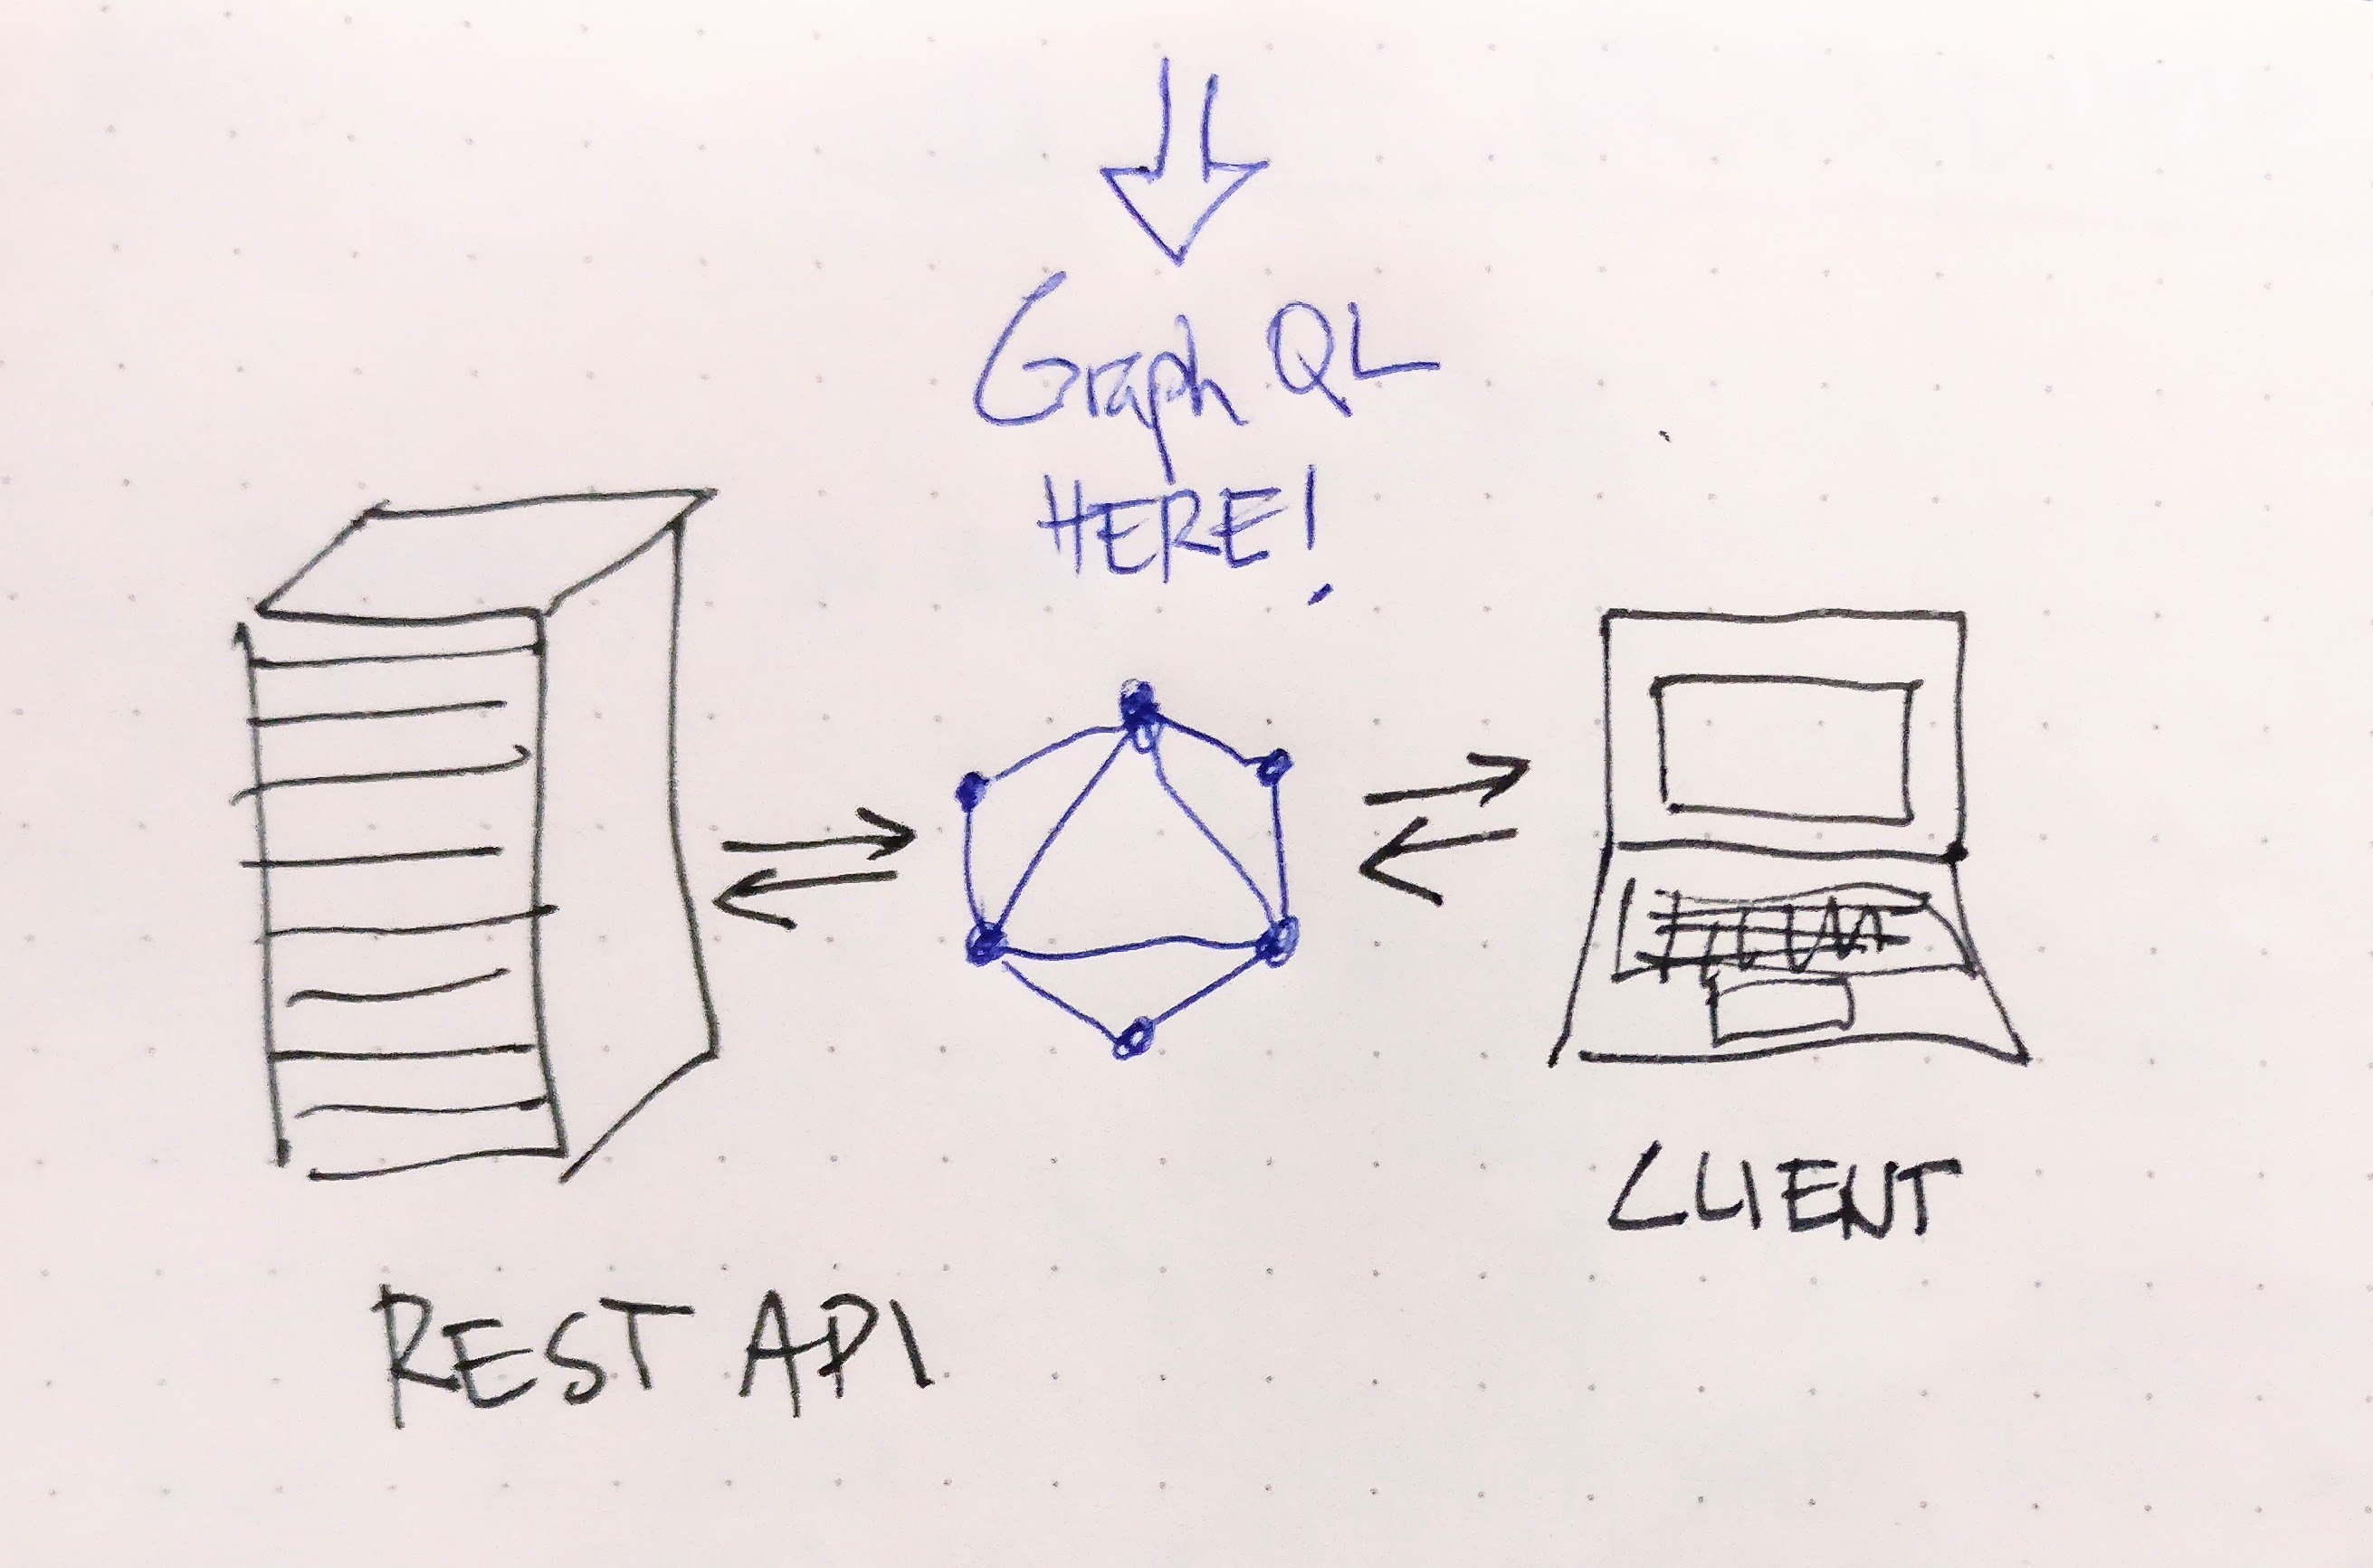 Graph QL
HERE!
CLIENT
REST API